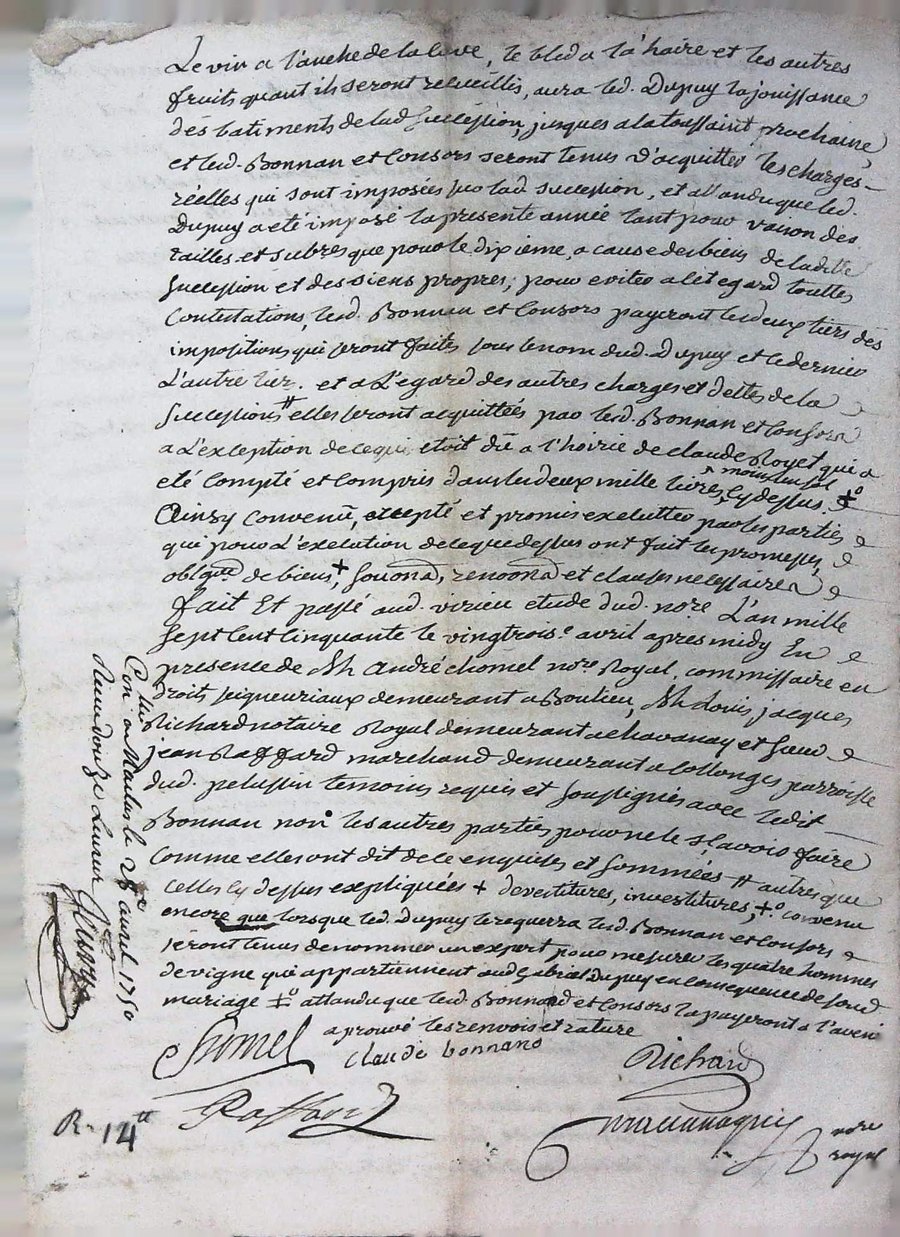 Le vin a l'anche de la cuve, le bled a l'haire et les autres
fruits quant ils seront recueillis, aura led. Dupuy la jouissance
des batiments de lad succession, jusques a la toussaint prochaine,
et led. Bonnan et Consors seront tenus d'acquitter les charges
réelles qui sont imposées sur lad succession, et attandu que led.
Dupuy a eté imposé la presente année tant pour raison des
tailles et subres que pour le dixieme, a cause des biens de laditte
succession et des siens propres; pour eviter a cet egard touttes
Contestations, led. Bonnan et Consors payeront les deux tiers des
impositions qui seront faites sous le nom dud. Dupuy et le dernier
L'autre tier. et a L'egard des autres charges et dettes de la
succession # elles seront acquittées par led. Bonnan et Consors
a L'exception de ce qui etoit dû a l'hoirie de claude Royet qui a
eté compté et compris dans les deux mille livres, cy dessus.
Ainsy convenu, accepté et promis executter par les parties
qui pour L'execution de ce que dessus ont fait les promesses,
oblig.on de biens, + soumis.on, renon.on et clauses necessaires
fait Et passé aud. virieu etude dud. nore. L'an mille
sept cent cinquante le vingtrois.e avril apres midy En
presence de Mh andré chomel nore. Royal, commissaire en
droits seigneuriaux demeurant a Boulieu, Mh Louis, jacques
Richard notaire Royal demeurant a chavanay et sieur
jean Raffard marchand demeurant a Collonges parroisse
dud. pelussin temoins requis et soussignés avec ledit
Bonnan non les autres parties pour ne le scavoir faire
comme elles ont dit de ce enquises et sommées # autres que
celles cy dessus expliquées + devestitures, investitures, convenu
encore que lorsque led. Dupuy le requerra led. Bonnan et Consors
seront tenus de nommer un expert pour mesurer les quatre hommes
de vigne qui appartiennent aud Gabriel Dupuy en consequence de son d
mariage attandu que led. Bonnand et Consors la payeront a l'aveni
aprouvé les renvois et rature
Chomel
claude bonnand
Richard
Raffard
nore
royal
R. 14tt
Con. a Maclas le 28e avril 1750
Reçu douze livres